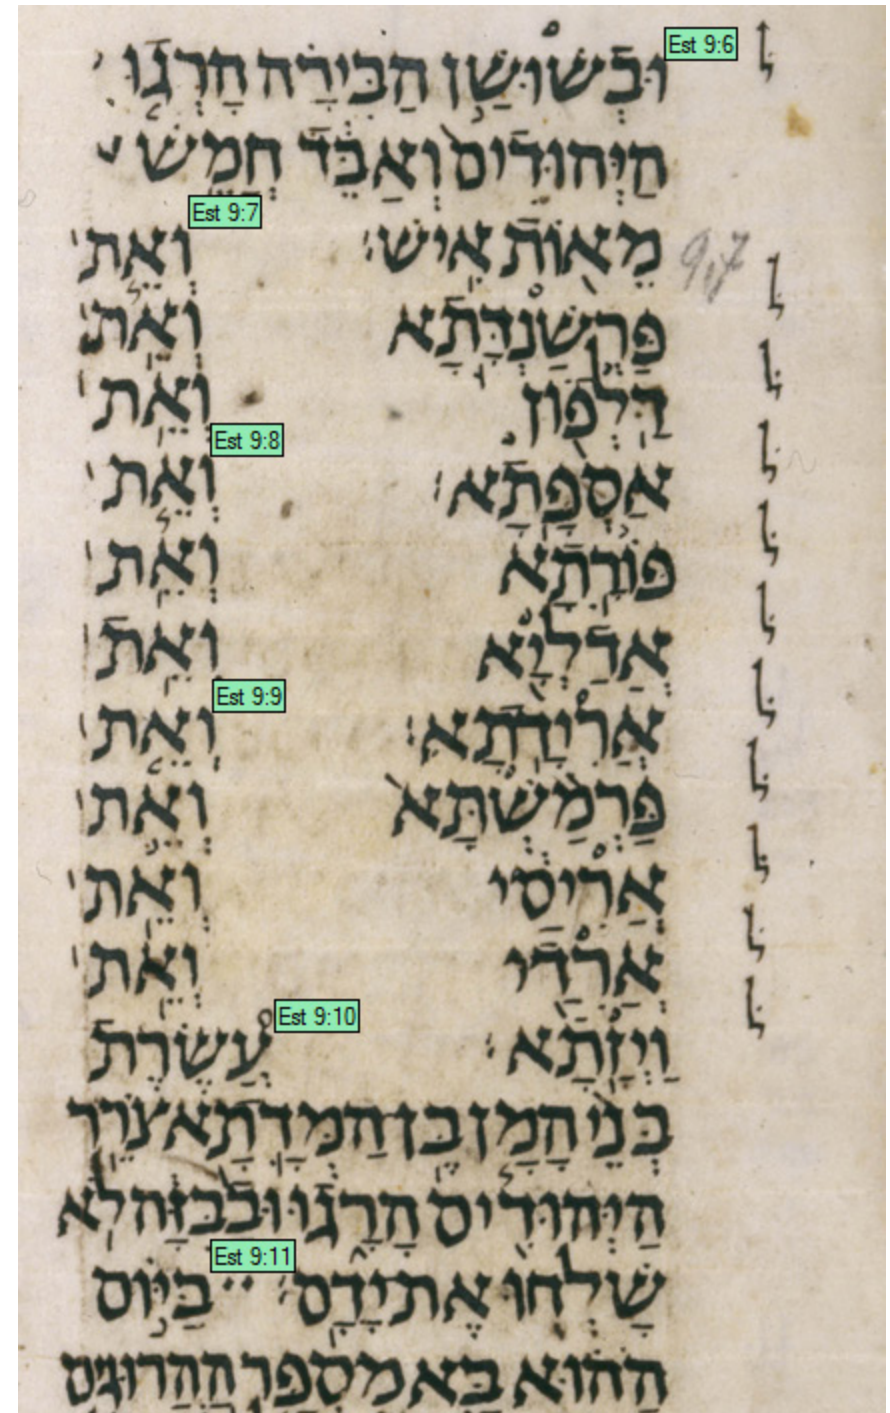 Est 9:6
וּבְשׁוּשַׁן הַבִּירָה הָרְגוּ
הַיְּהוּדִים וְאַבֵּד חֲמֵשׁ
Est 9:7
מֵאוֹת אִישׁ׃ וְאֵת 9,7
פַּרְשַׁנְדָּתָא וְאֵת
דַּלְפוֹן וְאֵת
Est 9:8
אַסְפָּתָא׃ וְאֵת
פּוֹרָתָא וְאֵת
אֲדַלְיָא וְאֵת
Est 9:9
אֲרִידָתָא׃ וְאֵת
פַּרְמַשְׁתָּא וְאֵת
אֲרִיסַי וְאֵת
אֲרִדַי וְאֵת
Est 9:10
וַיְזָתָא׃ עֲשֶׂרֶת
בְּנֵי הָמָן בֶּן הַמְּדָתָא צֹרֵר
הַיְּהוּדִים הָרָגוּ וּבַבִּזָּה לֹא
Est 9:11
שָׁלְחוּ אֶת יָדָם׃ בַּיּוֹם
הַהוּא בָּא מִסְפַּר הַהֲרוּגִים